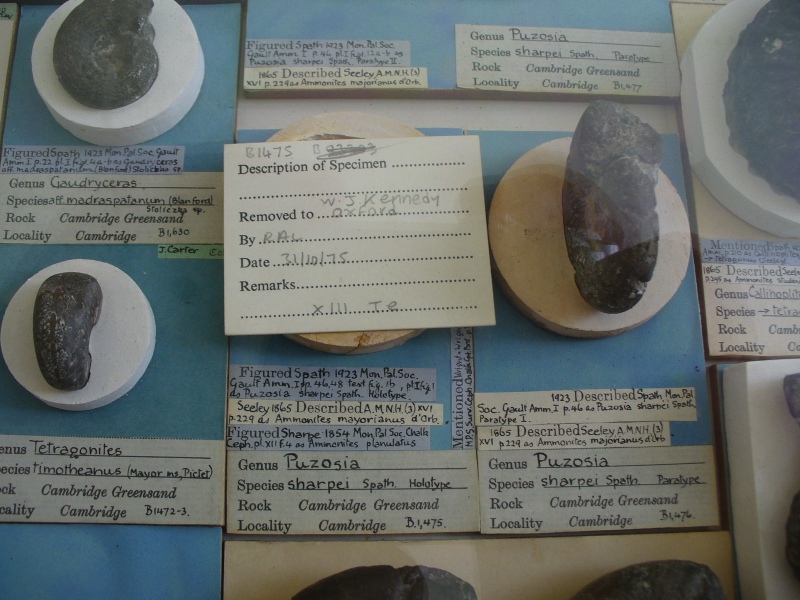 Figured Spath 1923 Mon. Pal. Soc.
Gault Amm. I p. 46 pl. I fig. 12 a-b as
Puzosia sharpei Spath, Paratype II.
1865 Described Seeley A.M.N.H. (3)
XVI p. 229 as Ammonites majorianus d'Orb.
Genus Puzosia
Species sharpei Spath. Paratype
Rock Cambridge Greensand
Locality Cambridge B1,477
Figured Spath 1923 Mon. Pal. Soc. Gault
Amm. I p. 22 pl. I fig. 4 a-b as Gaudryceras
aff. madraspatanum (Blanford) Stoliczka sp.
Genus Gaudryceras
Species aff. madraspatanum (Blanford)
Stoliczka sp.
Rock Cambridge Greensand
Locality Cambridge B1,630
J. Carter
B1475
Description of Specimen
Removed to W. J. Kennedy
Oxford
By R.A.L.
Date 31/10/75
Remarks
XIII T.e
Genus Tetragonites
Species timotheanus (Mayor ms, Pictet)
Rock Cambridge Greensand
Locality Cambridge B1472-3.
Figured Spath 1923 Mon. Pal. Soc.
Gault Amm. I pp. 46, 48 text fig. 1b, pl I fig. 1
as Puzosia sharpei Spath. Holotype.
Seeley 1865 Described A.M.N.H. (3) XVI
p. 229 as Ammonites mayorianus d'Orb.
Figured Sharpe 1854 Mon. Pal. Soc. Chalk
Ceph. pl. XII f. 4 as Ammonites planulatus
Genus Puzosia
Species sharpei Spath. Holotype
Rock Cambridge Greensand
Locality Cambridge B.1,475.
Mentioned
1923 Described Spath. Mon. Pal.
Soc. Gault Amm. I p. 46 as Puzosia sharpei Spath
Paratype I.
1865 Described Seeley A.M.N.H. (3)
XVI p. 229 as Ammonites majorianus d'Orb
Genus Puzosia
Species sharpei Spath. Paratype
Rock Cambridge Greensand
Locality Cambridge B1,476.
Mentioned Spath
1865 Described Seeley
Genus Callihoplites
Species → tetra
Rock Camb
Locality C